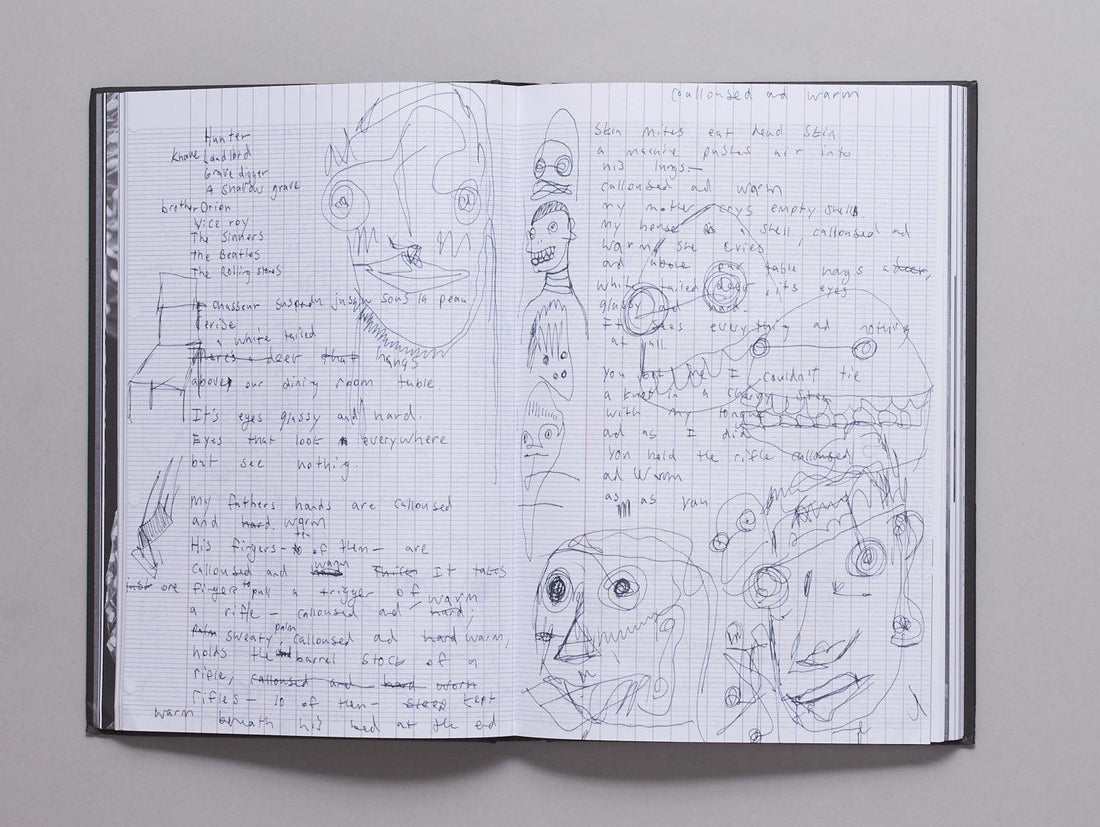 Hunter
Knave Landlord
Grave digger
A shallow grave
brother Orion
Vice roy
The Sinners
the Beatles
The Rolling stones
le chasseur suspendu sous la peau
a white tailed
There's a deer that hangs
above our dining room table.
It's eyes glassy and hard.
Eyes that look everywhere
but see nothing.
My fathers hands are calloused
and hard, warm
ten
His fingers- of them- are
warm
calloused and It takes
just one finger to pull a trigger of warm
a rifle - calloused and hard;
palm
palm sweaty, calloused ad hard warm,
holds the barrel stock of a
rifle, calloused and hard worn
rifles- 10 of them- kept
warm beneath his bed at the end
Calloused and warm
Skin mites eat dead skin
a machine pushes air into
his lungs—
calloused ad warm
my mother crys empty shells
my house is a shell, calloused ad
warm she cries
ad above our table hangs a deer,
white tailed deer, its eyes
glassy ad hard.
It sees everything ad nothing
at all.
You bet me I couldn't tie
a knot in a cherry stem
with my tongue
ad as I did
You hold the rifle calloused
ad warm
as as you